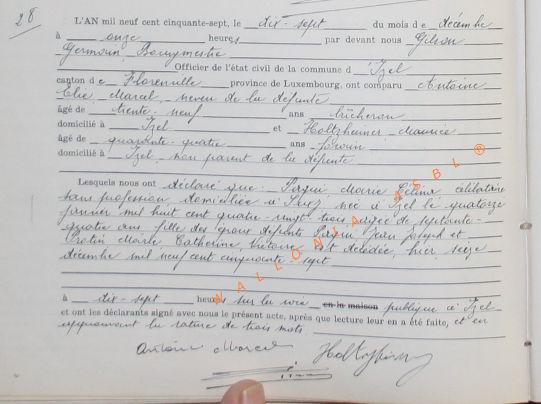 28
L'AN mil neuf cent cinquante-sept, le dix-sept du mois de décembre
à onze heures par devant nous Gilson
Germain, Bourgmestre
Officier de l'état civil de la commune d'Izel
canton de Florenville province de Luxembourg, ont comparu Antoine
Elie, Marcel, neveu de la défunte
âgé de trente-neuf ans bûcheron
domicilié à Izel et Holtzheimer Maurice
âgé de quarante-quatre ans
domicilié à Izel, non parent de la défunte
Lesquels nous ont déclaré que: Marie Célina, célibataire
sans profession domiciliée à Izel, née à Izel le quatorze
mil huit cent quatre-vingt-trois, âgée de septante-
quatre ans, fille des époux défunts Jean Joseph et
Marie Catherine Victoire est décédée, hier seize
décembre mil neuf cent cinquante-sept
à dix-sept heures sur la voie en la maison publique à Izel
et ont les déclarants signé avec nous le présent acte, après que lecture leur en a été faite, et en
approuvant la rature de trois mots
Antoine Marcel
WALLONIA ASBL ®